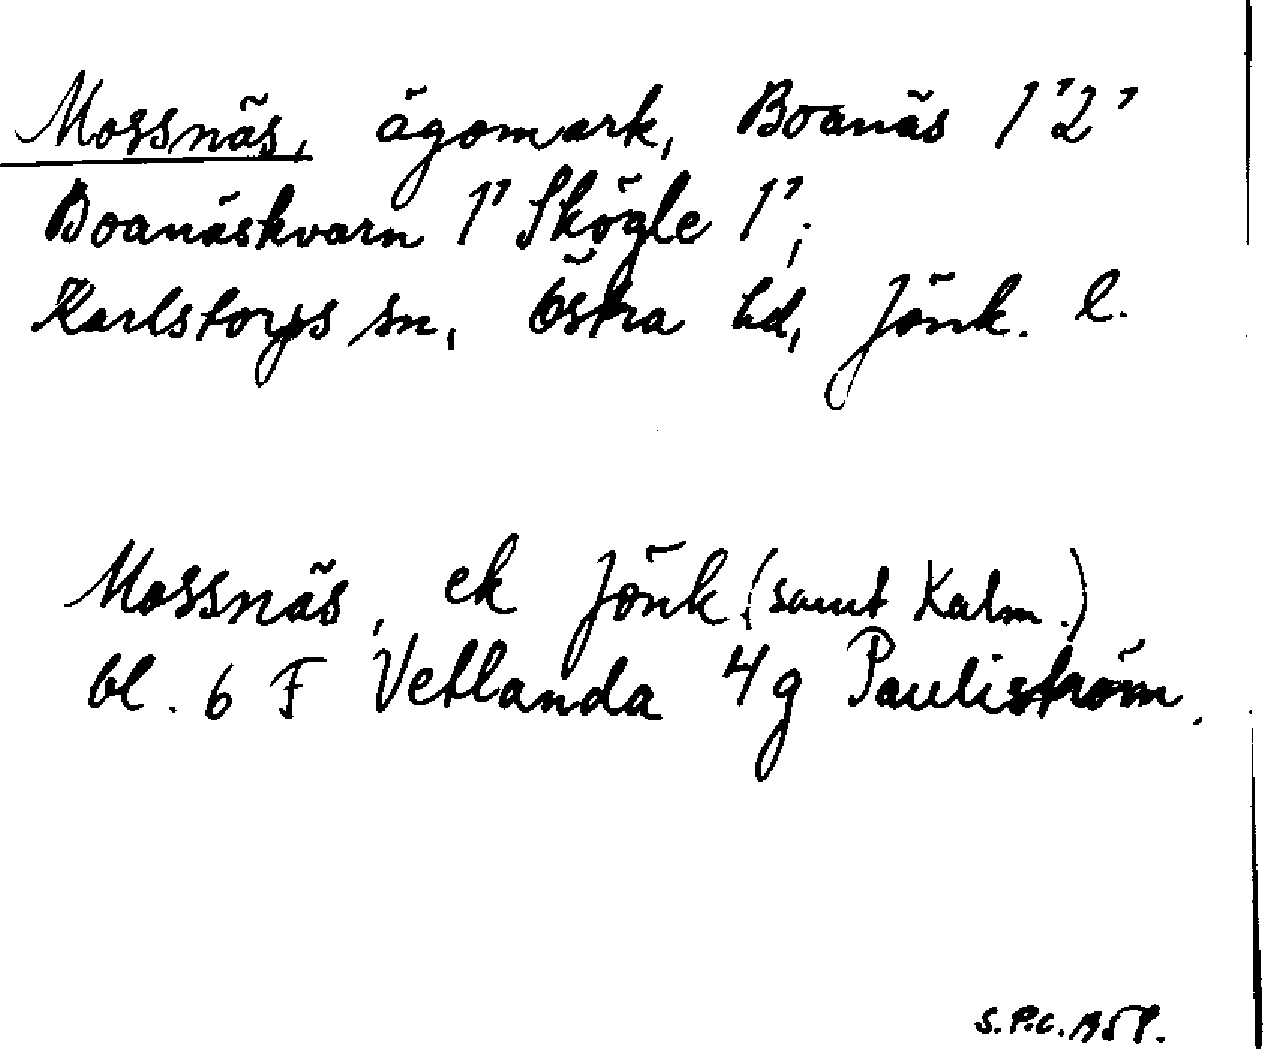 Mossnäs, ägomark, Boanäs 1’2’
Boanäskvarn 1’ Skögle 1’;
Karlstorps sn, Östra hd, Jönk. l.
Mossnäs, ek Jönk (samt Kalm.)
bl. 6 F Vetlanda 4g Pauliström.
S.P.C.